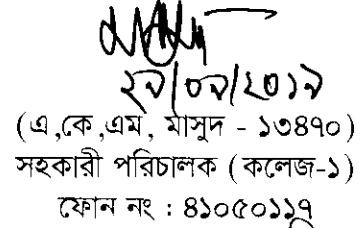 ২৯/০৯/২০১৯
(এ,কে,এম, মাসুদ - ১৩৪৭০)
সহকারী পরিচালক (কলেজ-১)
ফোন নং : ৪১০৫০১১৭